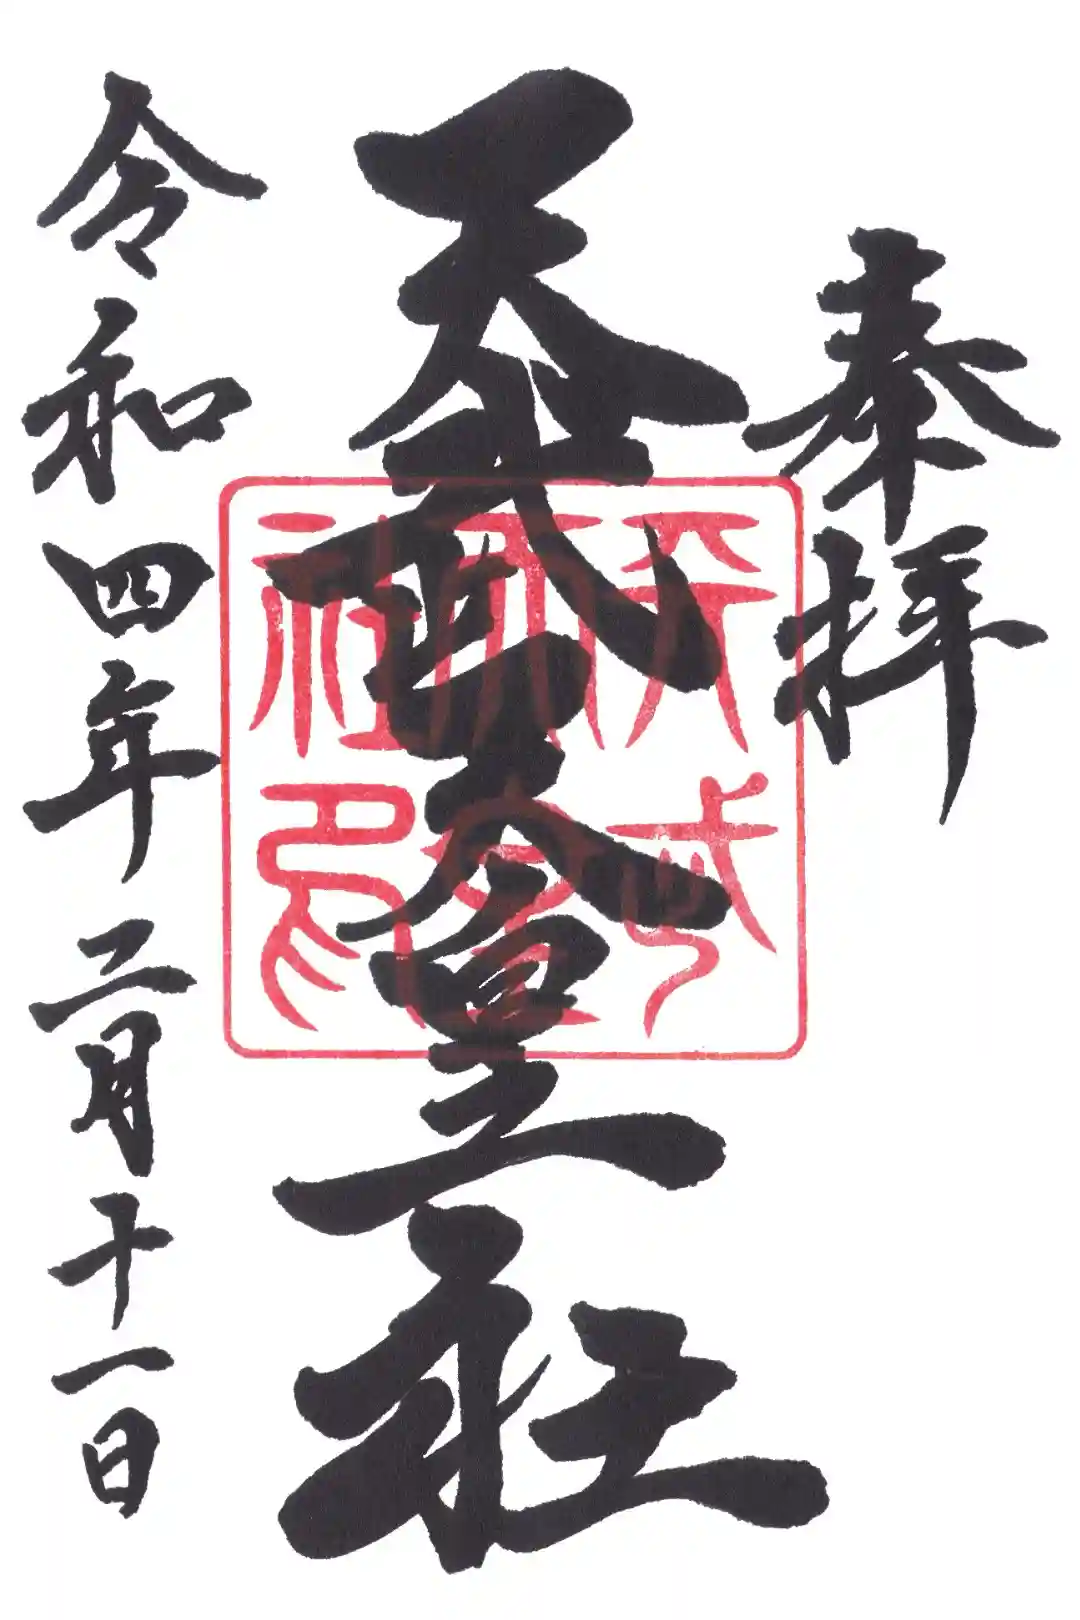 奉拝
天武天皇社
天武
天皇
社印
令和四年二月十一日